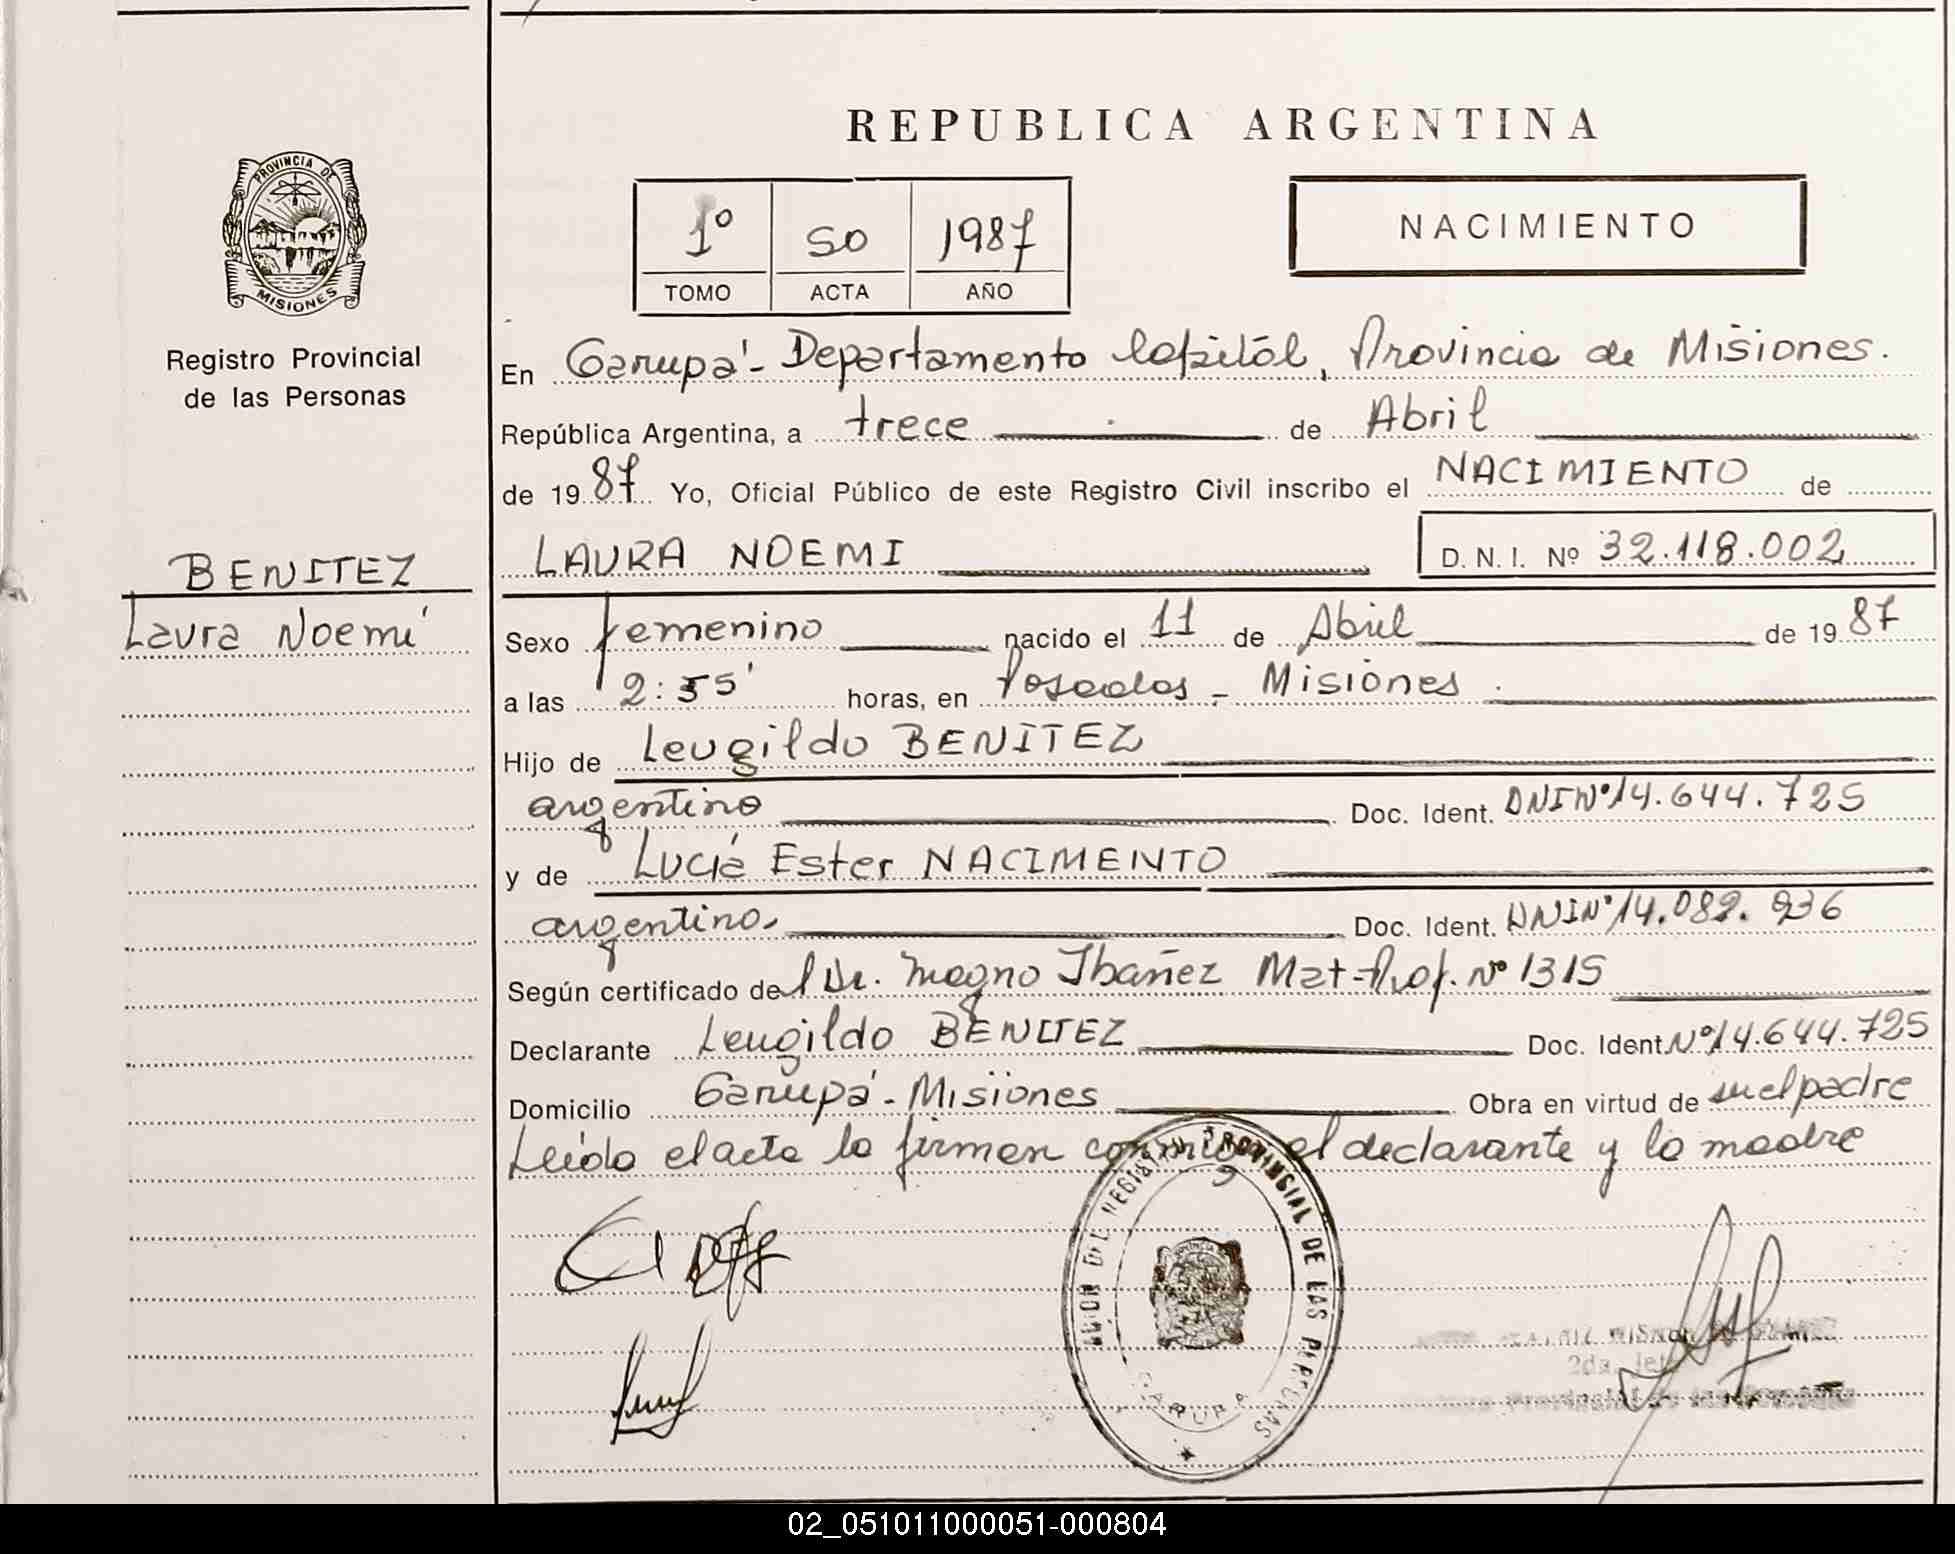 REPUBLICA ARGENTINA
PROVINCIA DE
MISIONES
1º 50 1987
TOMO ACTA AÑO
NACIMIENTO
Registro Provincial
de las Personas
En Garupá - Departamento Capital, Provincia de Misiones.
República Argentina, a trece de Abril
de 1987 Yo, Oficial Público de este Registro Civil inscribo el NACIMIENTO de
LAURA NOEMI D. N. I. Nº 32.118.002
BENITEZ
Laura Noemí
Sexo femenino nacido el 11 de Abril de 1987
a las 2:55' horas, en Posadas - Misiones.
Hijo de Leugildo BENITEZ
argentino Doc. Ident. DNI Nº 14.644.725
y de Lucía Ester NACIMENTO
argentina Doc. Ident. DNI Nº 14.089.936
Según certificado del Dr. Magno Ibañez Mat-Prof. Nº 1315
Declarante Leugildo BENITEZ Doc. Ident Nº 14.644.725
Domicilio Garupá - Misiones Obra en virtud de ser el padre
Leída el acta la firman conmigo el declarante y la madre
REGISTRO PROVINCIAL DE LAS PERSONAS
GARUPA
2da. Jefe
02_051011000051-000804